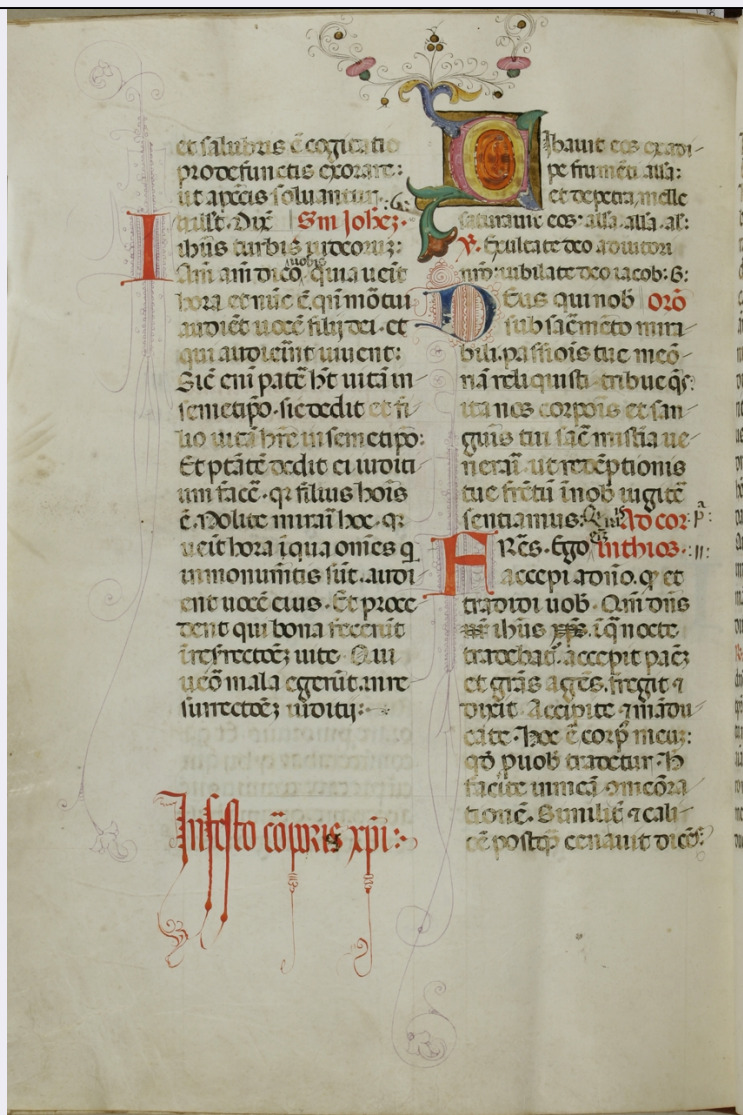 et salubris ē cogitatio
pro defunctis exorare:
ut a pctis soluantur. :G:
Sm Johēz.
I
ihūs turbis iudeoruz:
Am am dico uobis, quia uenit
hora et nūc ē. qn̄ mōtui
audiēt uocē filij dei. et
qui audieīnt uiuent:
Sic eni patē ht uitā in
semetipo. sic dedit et fi
lio uitā hre in semetipo:
Et ptātē dedit ei iuditi
um facē. qr filius hois
ē. Nolite mirai hoc. qr
ueit hora ī qua omēs q
in monumētis sūt. audi
ent uocē eius. Et proce
dent qui bona fecerūt
ī resrectoēz uite. Qui
ueō mala egerūt. in re
surrectoēz iuditij:
In festo cōpris xpi:
Cibauit eos ex adi
pe frumēti alla:
et de petra, melle
saturauit eos. alla. alla. al:
V. Exultate deo adiutori
nrō: iubilate deo iacob: G:
Deus qui nob orō
sub sacmēto mira
bili. passiois tue meō
riā reliquisti. tribue qs:
ita nos corpois et san
guis tui sac misteia ue
nerai. ut redēptionis
tue fretū ī nob iugitē
sentiamus: Ad cor
FRēs. Ego inthios. :11:
accepi a dnīo. q et
tradidi uob. Qm dns
ihūs ī q nocte
tradebat. accepit pacēz
et gras agēs. fregit ⁊
dixit. Accipite ⁊ mādu
cate. Hoc ē corp meuz:
qd p uob tradetur. H
facite in meā omeōra
tionē. Similit ⁊ cali
cē postq cenauit dicēs: